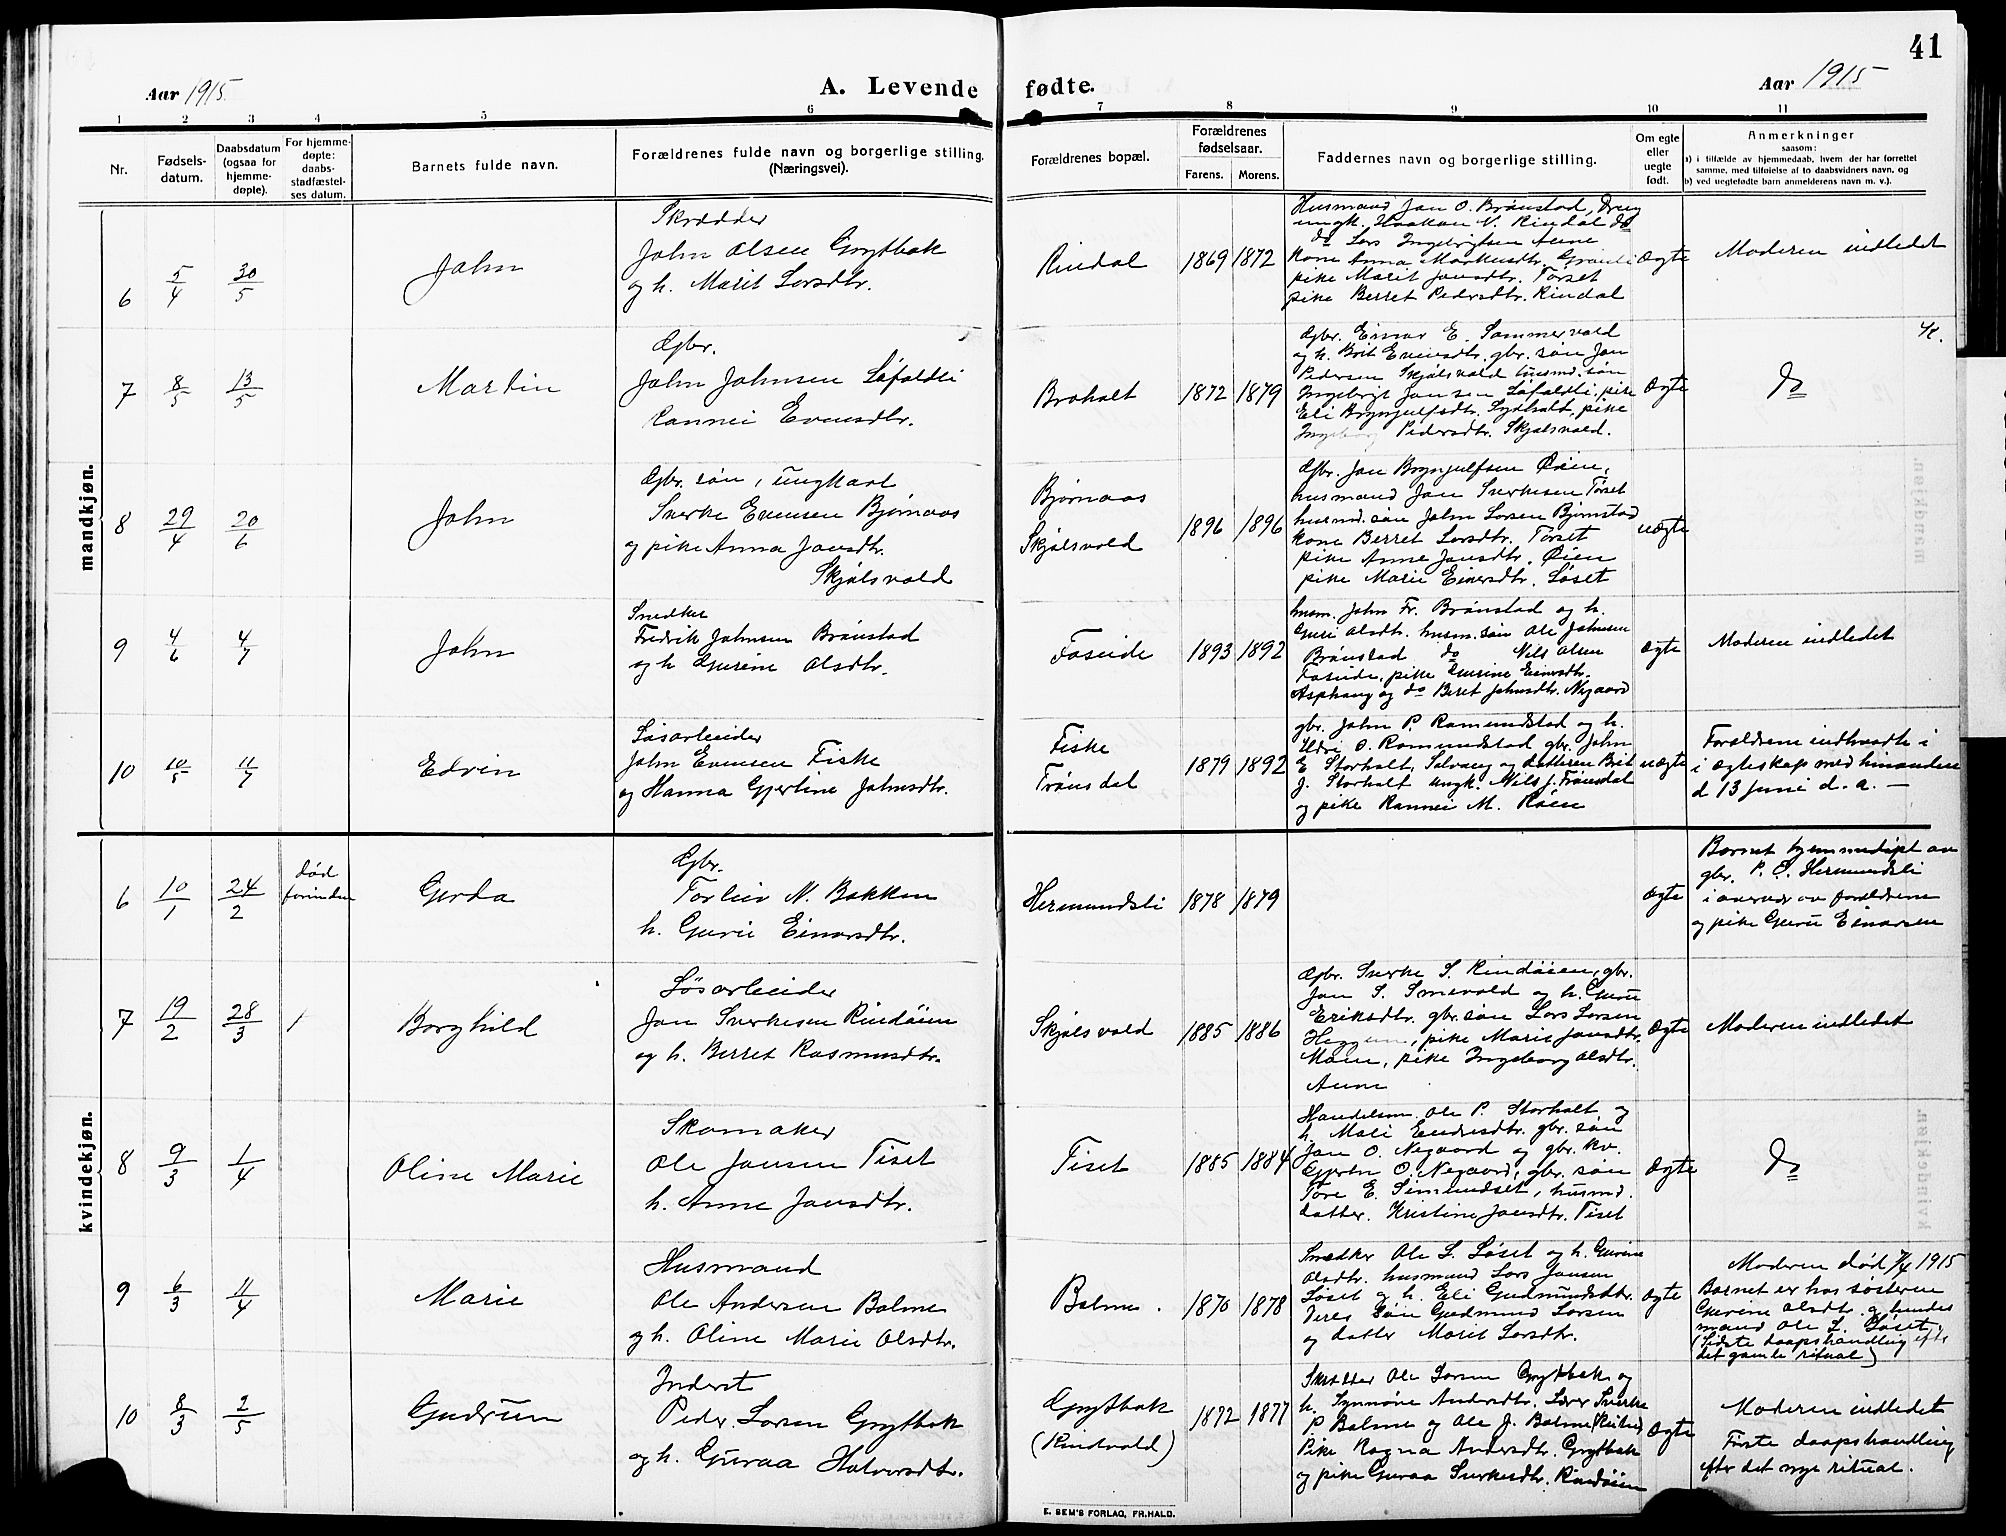 41
Aar 1915
A. Levende fødte.
Aar 1915
1 2 3 4 5 6 7 8 9 10 11
Nr.
Fødsels-
datum.
Daabsdatum
(ogsaa for
hjemme-
døpte).
For hjemme-
døpte:
daabs-
stadfæstel-
ses datum.
Barnets fulde navn.
Forældrenes fulde navn og borgerlige stilling.
(Næringsvei).
Forældrenes bopæl.
Forældrenes
fødselsaar.
Farens. Morens.
Faddernes navn og borgerlige stilling.
Om egte
eller
uegte
født.
Anmerkninger
saasom:
a) i tilfælde av hjemmedaab, hvem der har forrettet
samme, med tilføielse af to daabsvidners navn, og
b) ved uegtefødte barn anmelderens navn m. v.).
mandkjøn.
6 5/4 30/5
John
Skrædder
John Olsen Grytbak
og h. Marit Larsdtr.
Rindal
1869 1872
Husmand Jon O. Brønstad,
ungk. Haakon N. Rindal do
do Lars Ingebrigtsen Aune
kone Anna Markusdtr.
pike Marit Jonsdtr. Tørset
pike Berret Pedersdtr. Rindal
Ægte
Moderen indledet
7 8/5 13/5
Martin
Gbr.
John Johnsen Løfaldli
Rannei Evensdtr.
Broholt
1872 1879
Gbr. Einar E. Sommervold
og h. Brit Evensdtr. gbr. søn Jon
Pedersen Skjølsvold husmd. søn
Ingebrigt Jonsen Løfaldli, pike
Eli Brynjulfsdtr. Sydhalt, pike
Ingeborg Pedersdtr. Skjølsvold.
Ægte
do
8 29/4 20/6
John
Gbr. søn, ungkarl
Sverke Evensen Bjørnaas
og pike Anna Jonsdtr.
Skjølsvold
Bjørnaas
Skjølsvold
1896 1896
Gbr. Jon Brynjulfsen Øien,
husmand Jon Sverkesen Tørset
husmd. søn John Larsen Bjørnstad
kone Berret Larsdtr. Tørset
pike Anne Jonsdtr. Øien
pike Marie Einersdtr. Løset
uægte
9 4/6 4/7
John
Snedker
Fredrik Johnsen Brønstad
og h. Gurine Olsdtr.
Faseide
1893 1892
husm. John Fr. Brønstad og h.
Guri Olsdtr. husm. søn Ole Johnsen
Brønstad do Nils Olsen
Faseide, pike Gurine Einersdtr.
Asphaug og do Beret Johnsdtr. Negaard
Ægte
Moderen indledet
10 10/5 11/7
Edvin
Løsarbeider
John Evensen Fiske
og Hanna Gjertine Johnsdtr.
Fiske
Trønsdal
1879 1892
gbr. John P. Romundstad og h.
Ildri O. Romundstad gbr. John
E Storholt, Solvang og datteren Brit
J. Storholt ungk. Nils J. Trønsdal
og pike Rannei M. Røen
uægte
Forældrene indtraadte i
i ægteskap med hinanden
d 13 juni d. a. —
kvindekjøn.
6 10/1 24/2
død
forinden
Gerda
Gbr.
Torleiv N. Bakken
h. Gurie Einarsdtr.
Hermundsli
1878 1879
Ægte
Barnet hjemmedøpt av
gbr. P. E. Hermundsli
i overvær av forældrene
og pike Guru Einarsen
7 19/2 28/3
Borghild
Løsarbeider
Jon Sverkesen Rindøien
og h. Berret Rasmusdtr.
Skjølsvold
1885 1886
Gbr. Sverke S. Rindøien, gbr.
Jon S. Smevold og h. Guru
Eriksdtr. gbr. søn Lars Larsen
Heggem, pike Marie Jonsdtr.
Moen, pike Ingeborg Olsdtr.
Aune
Ægte
Moderen indledet
8 9/3 1/4
Oline Marie
Skomaker
Ole Jonsen Tiset
h. Anne Jonsdtr.
Tiset
1885 1884
Handelsm. Ole P. Storholt, og
h. Mali Endresdtr. gbr. søn
Jon O. Negaard og gbr. kv.
Gjertin O. Negaard, gbr. søn
Tore E. Simundset, husmd.
datter. Kristine Jonsdtr. Tiset
Ægte
do
9 6/3 11/4
Marie
Husmand
Ole Andersen Bolme
og h. Oline Marie Olsdtr.
Bolme.
1870 1878
Snedker Ole L. Løset og h. Gurine
Olsdtr. husmand Lars Jonsen
Løset og h. Eli Gudmundsdtr.
deres søn Gudmund Larsen
og datter Marit Larsdtr.
Ægte
Moderen død 7/4 1915
Barnet er hos søsteren
Gurine Olsdtr. og hendes
mand Ole L. Løset.
(Sidste daapshandling efter
det gamle ritual)
10 8/3 2/5
Gudrun
Inderst
Peder Larsen Grytbak
og h. Guraa Halvorsdtr.
Grytbak
(Rindvold)
1872 1877
Skrædder Ole Larsen Grytbak og
h. Synnøve Andersdtr. Lærer Sverke
P. Bolme og Ole J. Bolme
Pike Ragna Andersdtr. Grytbak
og pike Guraa Sverkesdtr. Rindøien
Ægte
Moderen indledet
Første daapshandling
efter det nye ritual.
E. SEM'S FORLAG, FR.HALD.